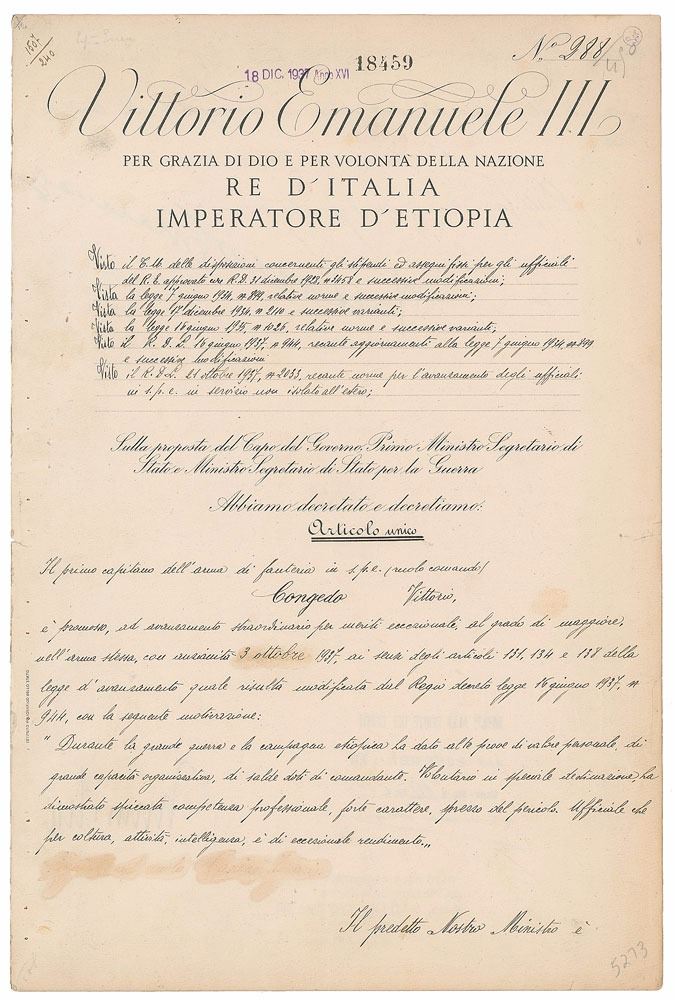 1507
240
18 DIC. 1937 Anno XVI
18459
N° 288
Vittorio Emanuele III
PER GRAZIA DI DIO E PER VOLONTÀ DELLA NAZIONE
RE D'ITALIA
IMPERATORE D'ETIOPIA
Visto il T.U. delle disposizioni concernenti gli stipendi ed assegni fissi per gli ufficiali
del R.E. approvato con R.D. 31 dicembre 1928, n 3458 e successive modificazioni;
Vista la legge 7 giugno 1934, n 899, relative norme e successive modificazioni;
Vista la legge 17 dicembre 1934, n 2110 e successive varianti;
Vista la legge 16 giugno 1935, n 1026, relative norme e successive varianti;
Visto il R. D. L. 16 giugno 1937, n 944, recante aggiornamenti alla legge 7 giugno 1934, n 899
e successive modificazioni
Visto il R.D.L. 21 ottobre 1937, n 2033, recante norme per l'avanzamento degli ufficiali
in s.p.e. in servizio non isolato all'estero;
Sulla proposta del Capo del Governo, Primo Ministro Segretario di
Stato e Ministro Segretario di Stato per la Guerra
Abbiamo decretato e decretiamo:
Articolo unico
Il primo capitano dell'arma di fanteria in s.p.e. (ruolo comando)
Congedo Vittorio,
è promosso, ad avanzamento straordinario per meriti eccezionali, al grado di maggiore,
nell'arma stessa, con anzianità 3 ottobre 1937, ai sensi degli articoli 131, 134 e 138 della
legge d'avanzamento quale risulta modificata dal Regio decreto legge 16 giugno 1937, n
944, con la seguente motivazione:
" Durante la grande guerra e la campagna etiopica ha dato alte prove di valore personale, di
grande capacità organizzativa, di salde doti di comandante. Volontario in speciale destinazione, ha
dimostrato spiccata competenza professionale, forte carattere, sprezzo del pericolo. Ufficiale che
per coltura, attività, intelligenza, è di eccezionale rendimento „
Il predetto Nostro Ministro è
5273